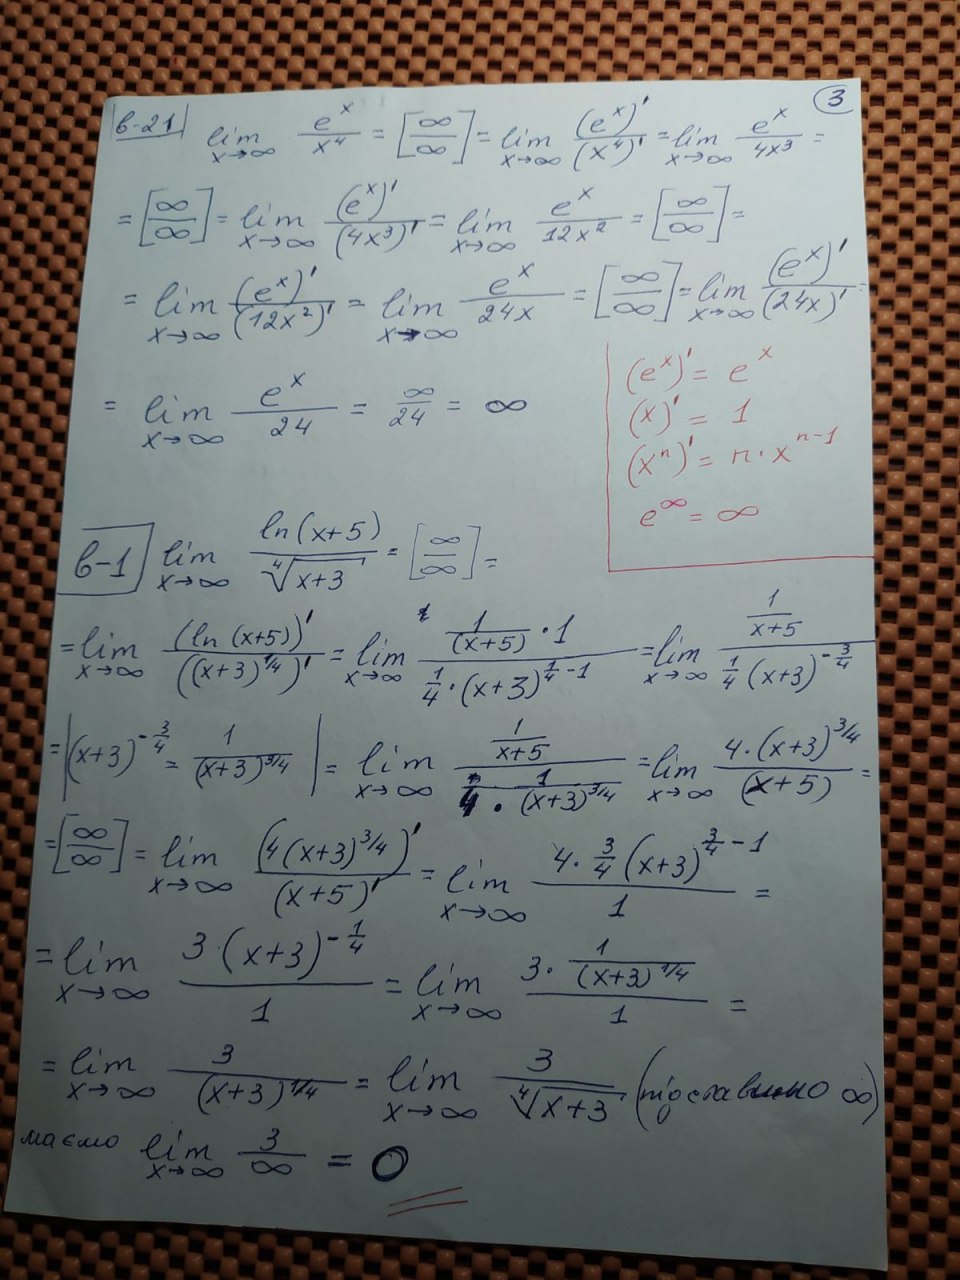 3
в-21 lim x→∞ e^x/x^4 = [∞/∞] = lim x→∞ (e^x)'/(x^4)' = lim x→∞ e^x/4x^3 =
= [∞/∞] = lim x→∞ (e^x)'/(4x^3)' = lim x→∞ e^x/12x^2 = [∞/∞] =
= lim x→∞ (e^x)'/(12x^2)' = lim x→∞ e^x/24x = [∞/∞] = lim x→∞ (e^x)'/(24x)' =
= lim x→∞ e^x/24 = ∞/24 = ∞
(e^x)' = e^x
(x)' = 1
(x^n)' = n·x^(n-1)
e^∞ = ∞
в-1 lim x→∞ ln(x+5)/∜(x+3) = [∞/∞] =
= lim x→∞ (ln(x+5))'/((x+3)^(1/4))' = lim x→∞ (1/(x+5)·1)/(1/4·(x+3)^(1/4-1)) = lim x→∞ (1/(x+5))/(1/4(x+3)^(-3/4))
= |(x+3)^(-3/4) = 1/(x+3)^(3/4)| = lim x→∞ (1/(x+5))/(1/4·1/(x+3)^(3/4)) = lim x→∞ 4·(x+3)^(3/4)/(x+5) =
= [∞/∞] = lim x→∞ (4(x+3)^(3/4))'/(x+5)' = lim x→∞ 4·3/4(x+3)^(3/4-1)/1 =
= lim x→∞ 3·(x+3)^(-1/4)/1 = lim x→∞ (3·1/(x+3)^(1/4))/1 =
= lim x→∞ 3/(x+3)^(1/4) = lim x→∞ 3/∜(x+3) (підставимо ∞)
маємо lim x→∞ 3/∞ = 0